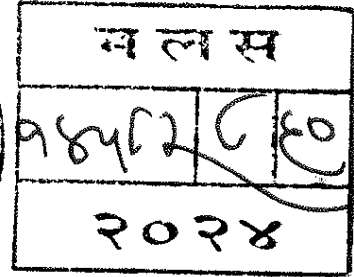 म ल स
१४५८२ ८ ६०
२०२४